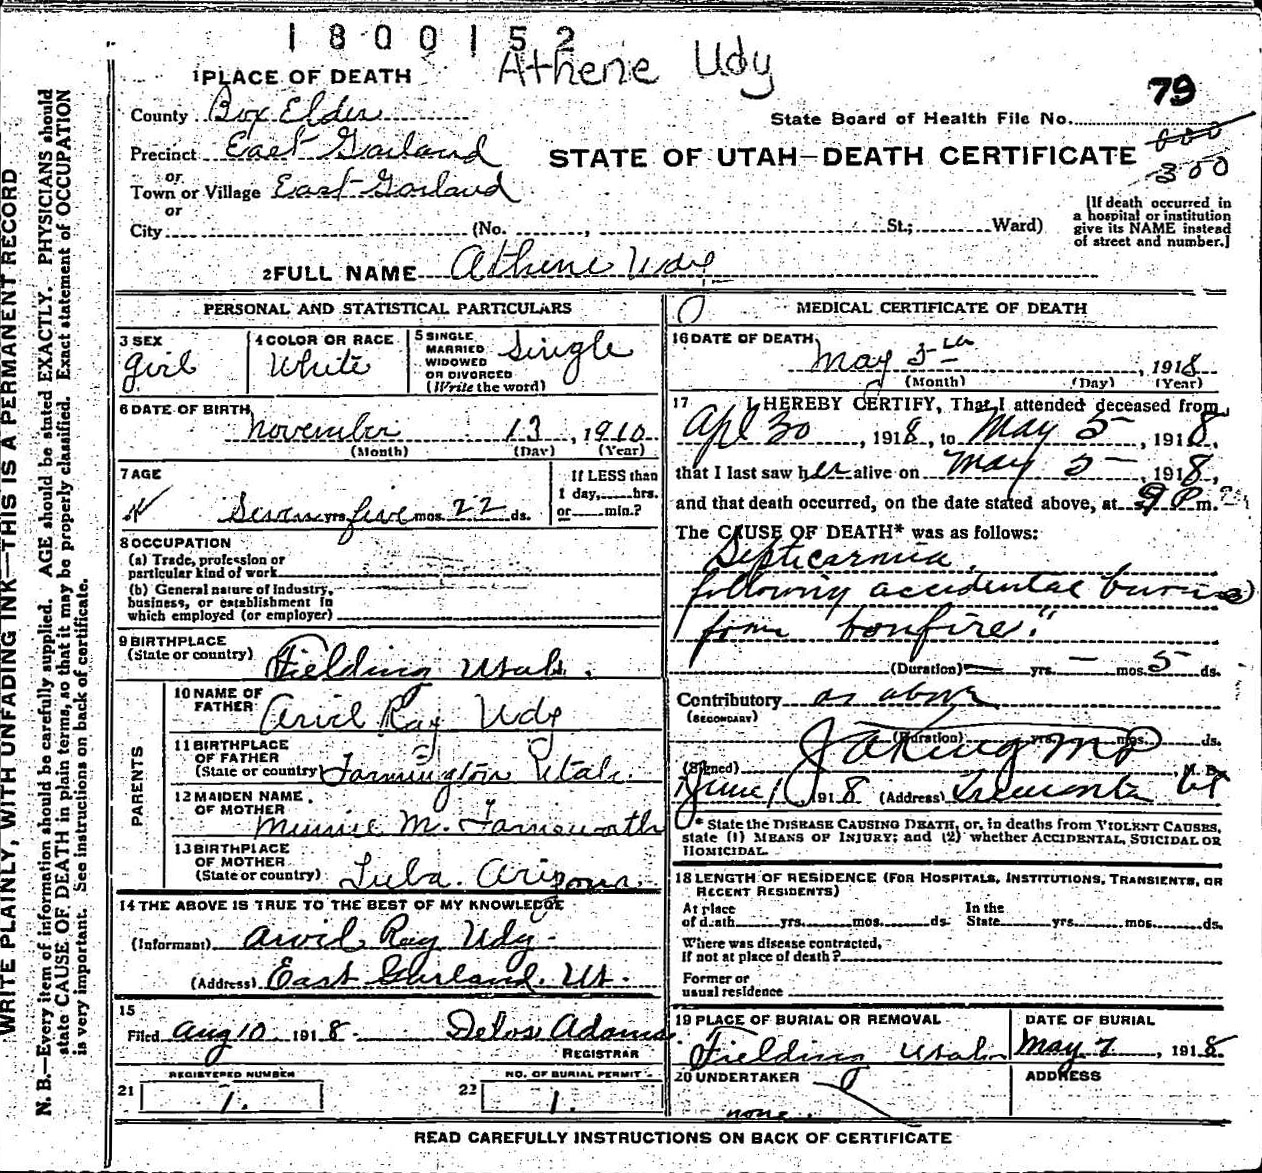 1800152
Athene Udy
79
1 PLACE OF DEATH
County Box Elder
State Board of Health File No.
Precinct East Garland
STATE OF UTAH—DEATH CERTIFICATE
300
or
Town or Village East Garland
or
City (No. , St.; Ward)
[If death occurred in
a hospital or institution
give its NAME instead
of street and number.]
2 FULL NAME Athene Udy
PERSONAL AND STATISTICAL PARTICULARS
3 SEX
girl
4 COLOR OR RACE
White
5 SINGLE
MARRIED
WIDOWED
OR DIVORCED
(Write the word)
Single
6 DATE OF BIRTH
November 13, 1910
(Month) (Day) (Year)
7 AGE
Seven yrs. five mos. 22 ds.
If LESS than
1 day, hrs.
or min.?
8 OCCUPATION
(a) Trade, profession or
particular kind of work
(b) General nature of Industry,
business, or establishment in
which employed (or employer)
9 BIRTHPLACE
(State or country) Fielding Utah.
PARENTS
10 NAME OF
FATHER Arvil Ray Udy
11 BIRTHPLACE
OF FATHER
(State or country) Farmington Utah.
12 MAIDEN NAME
OF MOTHER Minnie M. Farnsworth
13 BIRTHPLACE
OF MOTHER
(State or country) Tuba. Arizona.
14 THE ABOVE IS TRUE TO THE BEST OF MY KNOWLEDGE
(Informant) Arvil Ray Udy
(Address) East Garland. Ut.
15
Filed Aug 10 1918. Delos Adams
REGISTRAR
21 REGISTERED NUMBER
1.
22 NO. OF BURIAL PERMIT
1.
MEDICAL CERTIFICATE OF DEATH
16 DATE OF DEATH
May 5th, 1918
(Month) (Day) (Year)
17 I HEREBY CERTIFY, That I attended deceased from
Apl 30, 1918, to May 5, 1918,
that I last saw her alive on May 5, 1918,
and that death occurred, on the date stated above, at 9 P m.
The CAUSE OF DEATH* was as follows:
Septicaemia,
following accidental burns
from "bonfire."
(Duration) — yrs. — mos. 5 ds.
Contributory as above
(SECONDARY)
(Duration) yrs. mos. ds.
(Signed) M D, M. D.
June 1 1918 (Address) Tremonton Ut
* State the DISEASE CAUSING DEATH, or, in deaths from VIOLENT CAUSES,
state (1) MEANS OF INJURY; and (2) whether ACCIDENTAL, SUICIDAL OR
HOMICIDAL.
18 LENGTH OF RESIDENCE (FOR HOSPITALS, INSTITUTIONS, TRANSIENTS, OR
RECENT RESIDENTS)
At place
of death yrs. mos. ds.
In the
State yrs. mos. ds.
Where was disease contracted,
if not at place of death?
Former or
usual residence
19 PLACE OF BURIAL OR REMOVAL
Fielding Utah
DATE OF BURIAL
May 7, 1918
20 UNDERTAKER
none.
ADDRESS
READ CAREFULLY INSTRUCTIONS ON BACK OF CERTIFICATE
WRITE PLAINLY, WITH UNFADING INK—THIS IS A PERMANENT RECORD
N. B.—Every item of information should be carefully supplied. AGE should be stated EXACTLY. PHYSICIANS should
state CAUSE OF DEATH in plain terms, so that it may be properly classified. Exact statement of OCCUPATION
is very important. See instructions on back of certificate.